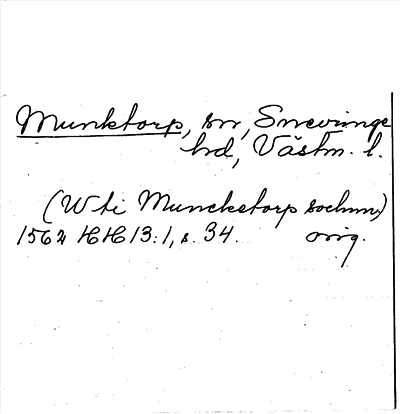 Munktorp, sn, Snevinge
hd, Västm. l.
(W ti Muncketorp sochnn)
1562 HH 13:1, s. 34. orig.